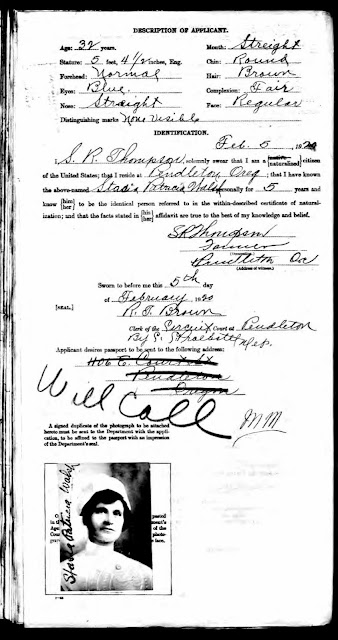 DESCRIPTION OF APPLICANT.
Age: 32 years. Mouth: Streight
Stature: 5 feet, 4 1/2 inches, Eng. Chin: Round
Forehead: Normal Hair: Brown
Eyes: Blue. Complexion: Fair
Nose: Straight Face: Regular
Distinguishing marks None Visible
IDENTIFICATION.
Feb. 5, 1920
I, S. R. Thompson, solemnly swear that I am a [native] [naturalized] citizen
of the United States; that I reside at Pendleton Oreg; that I have known
the above-named Stacia Patricia Walsh personally for 5 years and
know [him] [her] to be the identical person referred to in the within-described certificate of natural-
ization; and that the facts stated in [his] [her] affidavit are true to the best of my knowledge and belief.
S R Thompson
Farmer
Pendleton
(Address of witness.)
Sworn to before me this 5th day
of February 1920
[SEAL.] R. T. Brown
Clerk of the Circuit Court at Pendleton
By Dep.
Applicant desires passport to be sent to the following address:
406 E. Court St
Pendleton
Oregon
Will Call
MM
A signed duplicate of the photograph to be attached
hereto must be sent to the Department with the appli-
cation, to be affixed to the passport with an impression
of the Department's seal.
Stacia Patricia Walsh